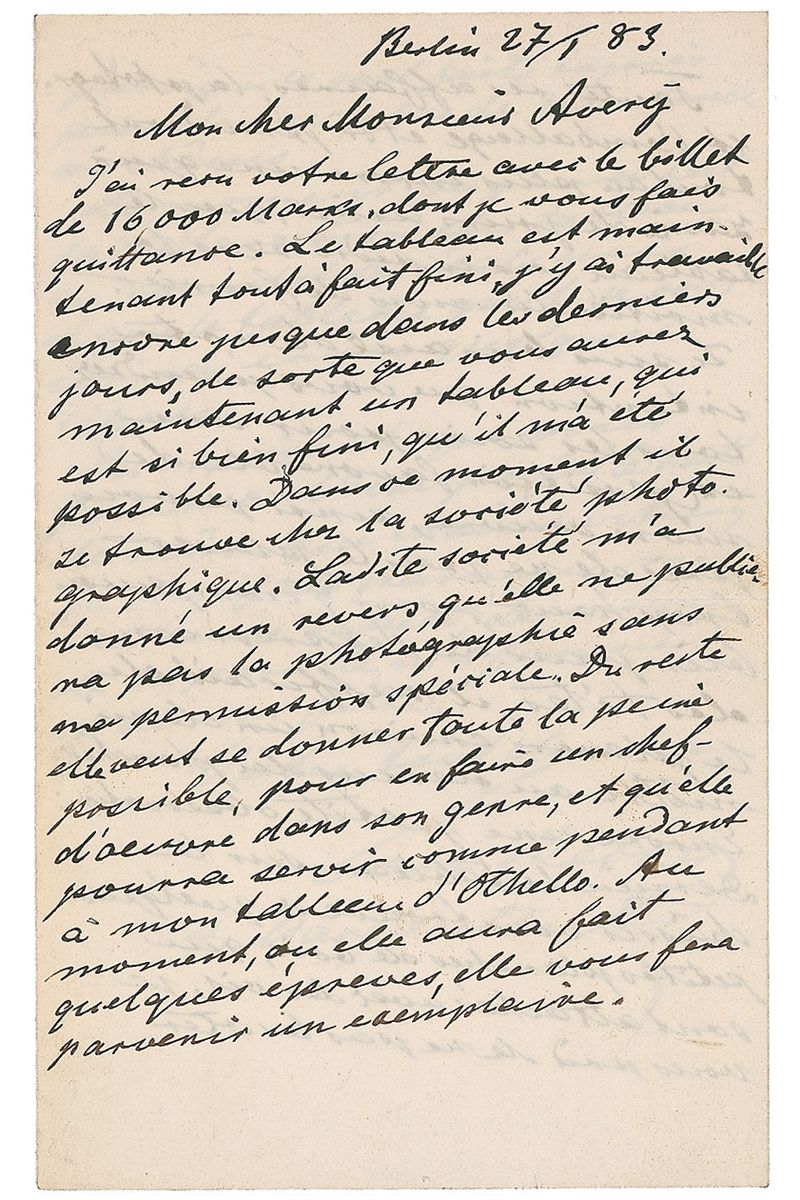 Berlin 27/I 83.
Mon cher Monsieur Avery
J'ai reçu votre lettre avec le billet
de 16000 Marks, dont je vous fais
quittance. Le tableau est main-
tenant tout à fait fini, j'y ai travaillé
encore jusque dans les derniers
jours, de sorte que vous aurez
maintenant un tableau, qui
est si bien fini, qu'il m'a été
possible. Dans ce moment il
se trouve chez la société photo-
graphique. Ladite société m'a
donné un revers, qu'elle ne publie-
ra pas la photographie sans
ma permission spéciale. Du reste
elle veut se donner toute la peine
possible, pour en faire un chef-
d'oeuvre dans son genre, et qu'elle
pourra servir comme pendant
à mon tableau d'Othello. Au
moment, ou elle aura fait
quelques épreves, elle vous fera
parvenir un exemplaire.